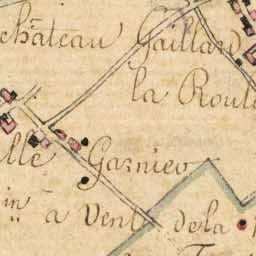 château Gaillard
la Roul
lle Garnier
in à Vent de la